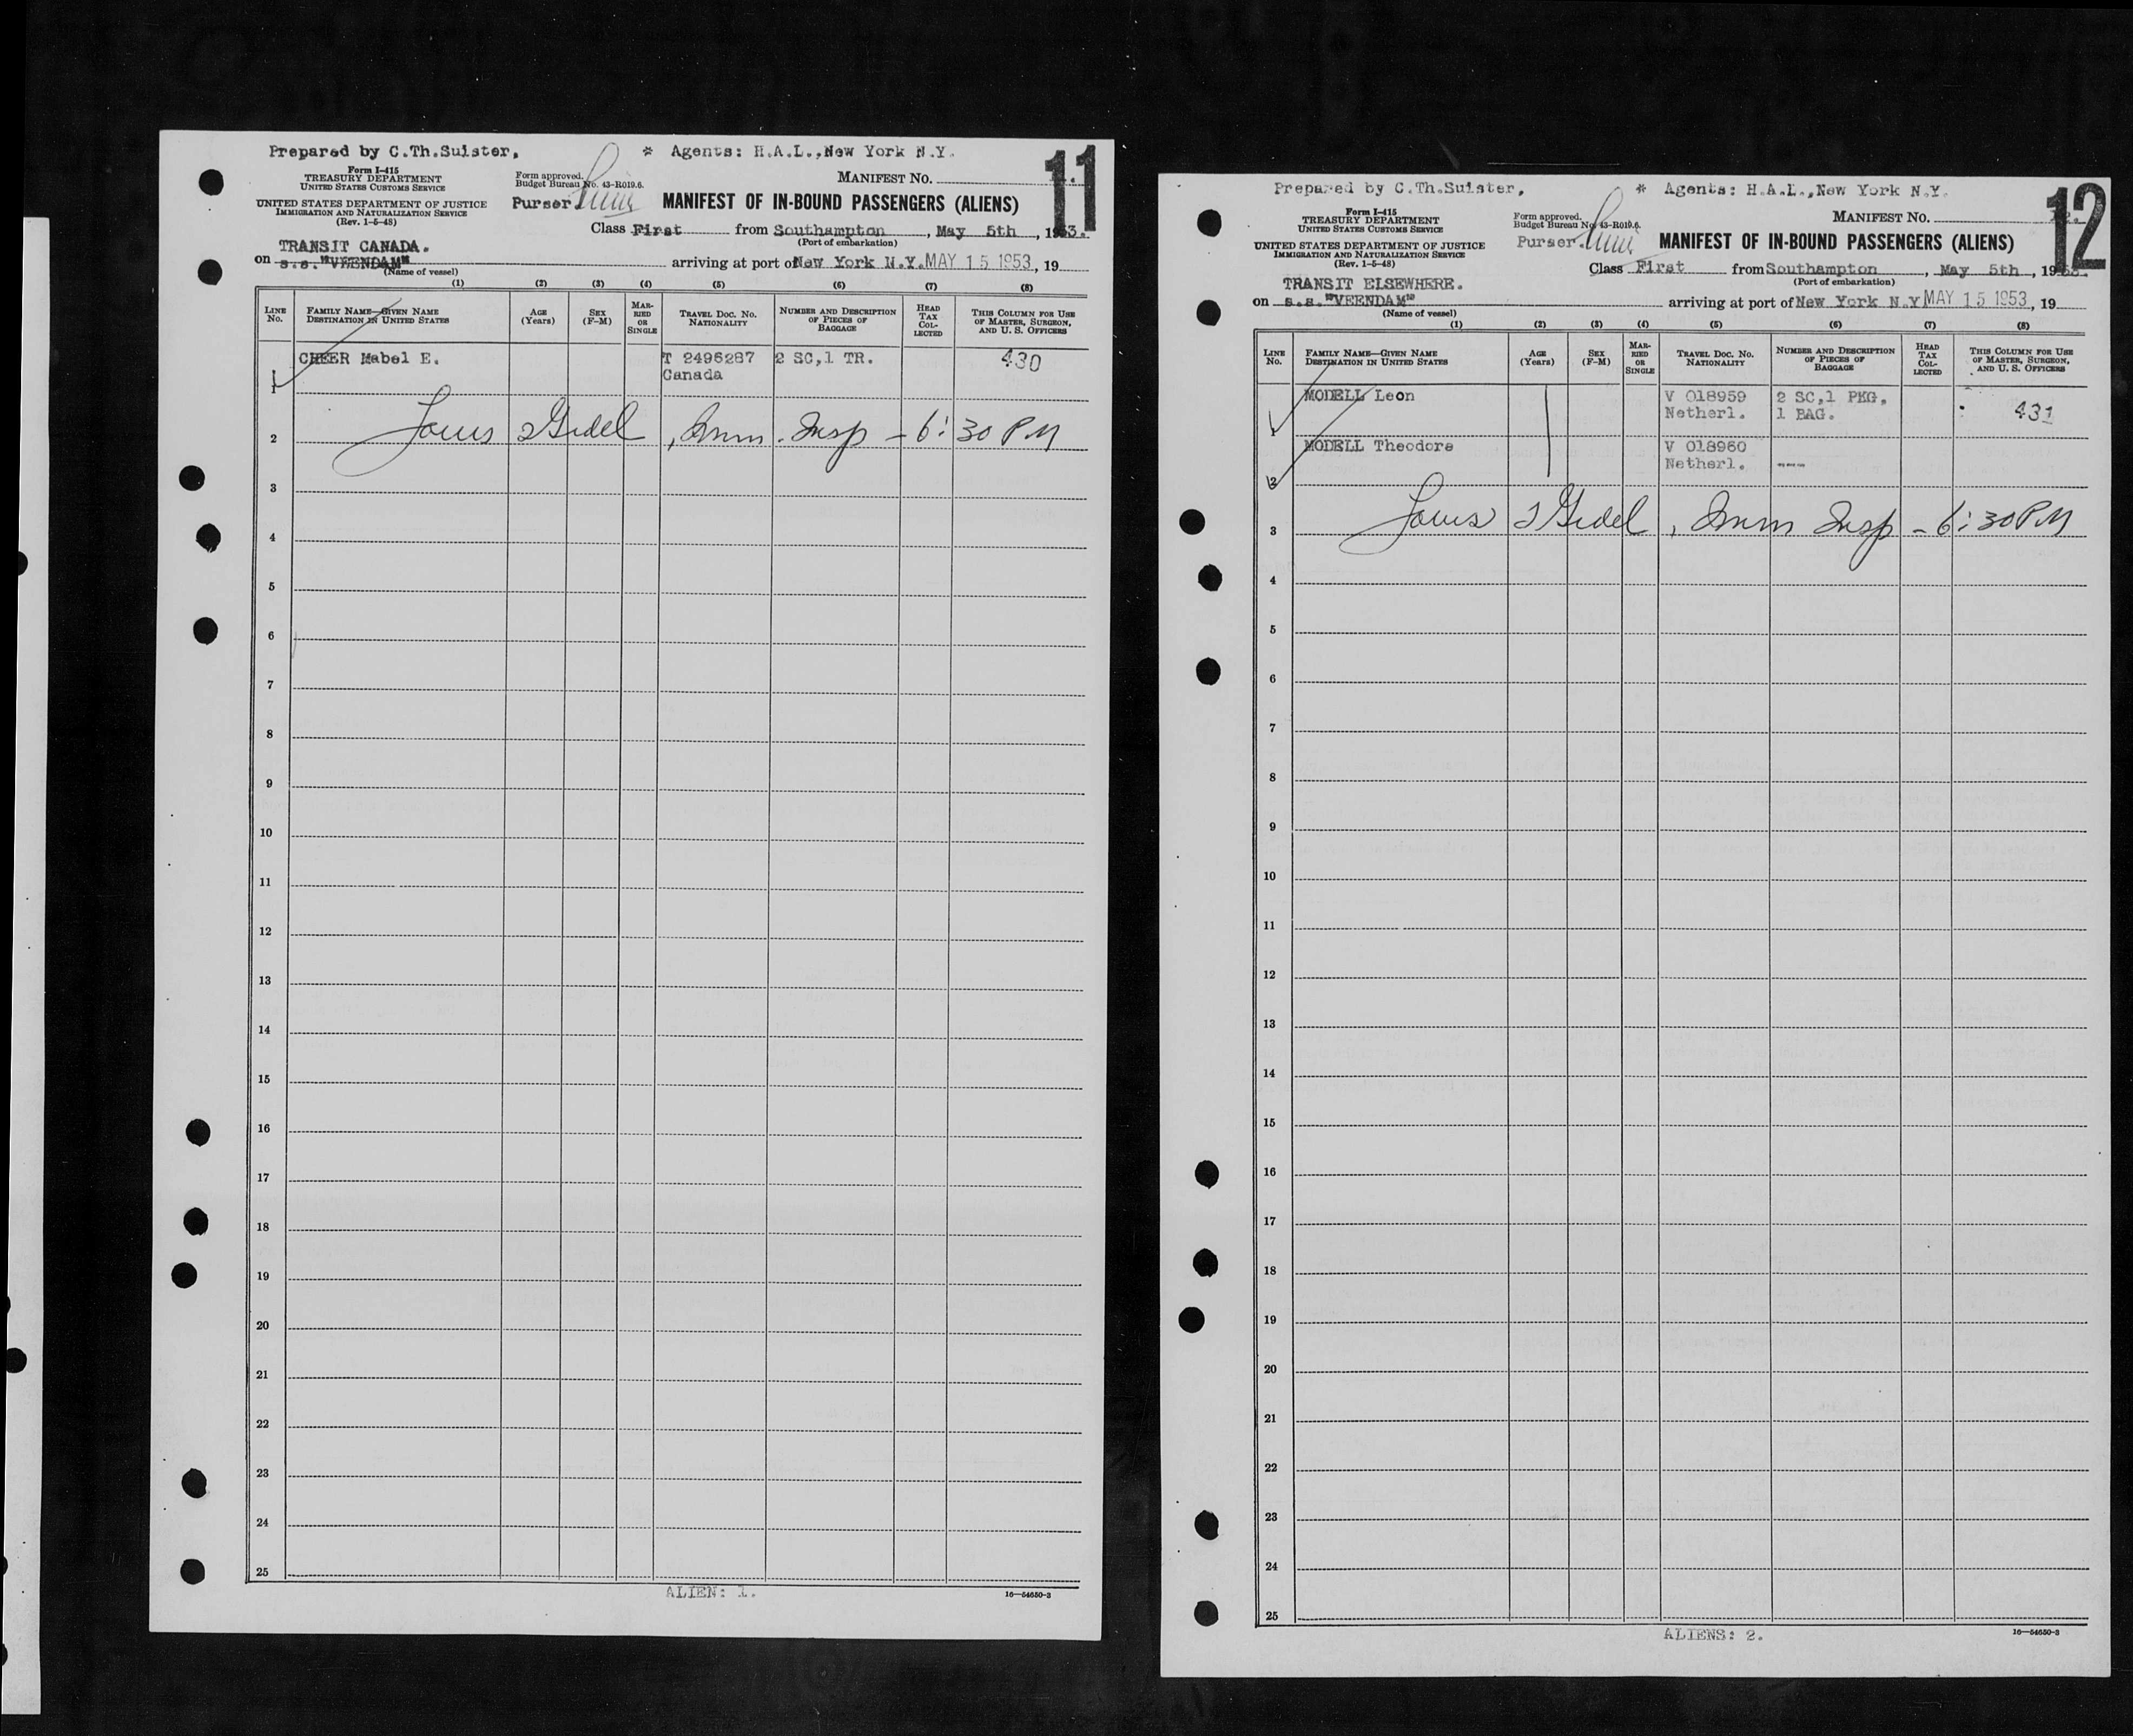 Prepared by C.Th.Suister, * Agents: H.A.L.,New York N.Y.
Form I-415
TREASURY DEPARTMENT
UNITED STATES CUSTOMS SERVICE
Form approved.
Budget Bureau No. 43-R019.6.
MANIFEST NO.
11
UNITED STATES DEPARTMENT OF JUSTICE
IMMIGRATION AND NATURALIZATION SERVICE
(Rev. 1-5-48)
Purser.
MANIFEST OF IN-BOUND PASSENGERS (ALIENS)
Class First from Southampton, May 5th, 1953.
(Port of embarkation)
TRANSIT CANADA.
on s.s."VEENDAM" arriving at port of New York N.Y. MAY 15 1953, 19
(Name of vessel)
(1) (2) (3) (4) (5) (6) (7) (8)
LINE No.
FAMILY NAME—GIVEN NAME
DESTINATION IN UNITED STATES
AGE
(Years)
SEX
(F-M)
MARRIED OR SINGLE
TRAVEL DOC. NO.
NATIONALITY
NUMBER AND DESCRIPTION
OF PIECES OF
BAGGAGE
HEAD TAX COLLECTED
THIS COLUMN FOR USE
OF MASTER, SURGEON,
AND U. S. OFFICERS
CHEER Mabel E. T 2496287 2 SC,1 TR. 430
Canada
1
2 Louis Gidel, Imm. Insp - 6:30 PM
3
4
5
6
7
8
9
10
11
12
13
14
15
16
17
18
19
20
21
22
23
24
25
ALIEN: 1.
16—54650-3
Prepared by C.Th.Suister, * Agents: H.A.L.,New York N.Y.
Form I-415
TREASURY DEPARTMENT
UNITED STATES CUSTOMS SERVICE
Form approved.
Budget Bureau No. 43-R019.6.
MANIFEST NO.
12
UNITED STATES DEPARTMENT OF JUSTICE
IMMIGRATION AND NATURALIZATION SERVICE
(Rev. 1-5-48)
Purser.
MANIFEST OF IN-BOUND PASSENGERS (ALIENS)
Class First from Southampton, May 5th, 1953.
(Port of embarkation)
TRANSIT ELSEWHERE.
on s.s."VEENDAM" arriving at port of New York N.Y MAY 15 1953, 19
(Name of vessel)
(1) (2) (3) (4) (5) (6) (7) (8)
LINE No.
FAMILY NAME—GIVEN NAME
DESTINATION IN UNITED STATES
AGE
(Years)
SEX
(F-M)
MARRIED OR SINGLE
TRAVEL DOC. NO.
NATIONALITY
NUMBER AND DESCRIPTION
OF PIECES OF
BAGGAGE
HEAD TAX COLLECTED
THIS COLUMN FOR USE
OF MASTER, SURGEON,
AND U. S. OFFICERS
MODELL Leon V 018959 2 SC,1 PKG,
Netherl. 1 BAG. 431
1
MODELL Theodore V 018960
Netherl. ---
2
3 Louis Gidel, Imm Insp - 6:30 PM
4
5
6
7
8
9
10
11
12
13
14
15
16
17
18
19
20
21
22
23
24
25
ALIENS: 2.
16—54650-3